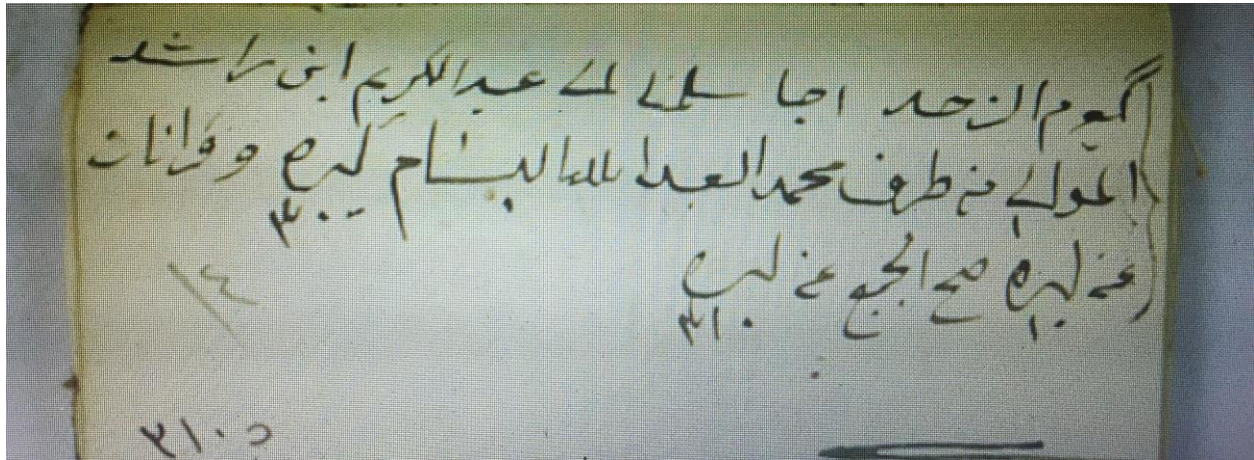 يوم الاحد اجا سلمنا لى عبدالكريم ابن راشد
المولى من طرف محمد العبدالله البسام ليره و فرانات
٣٠٠
عن ليره صح الجمع عن ليره
١٠ ٣١٠
١٤
٣١٠